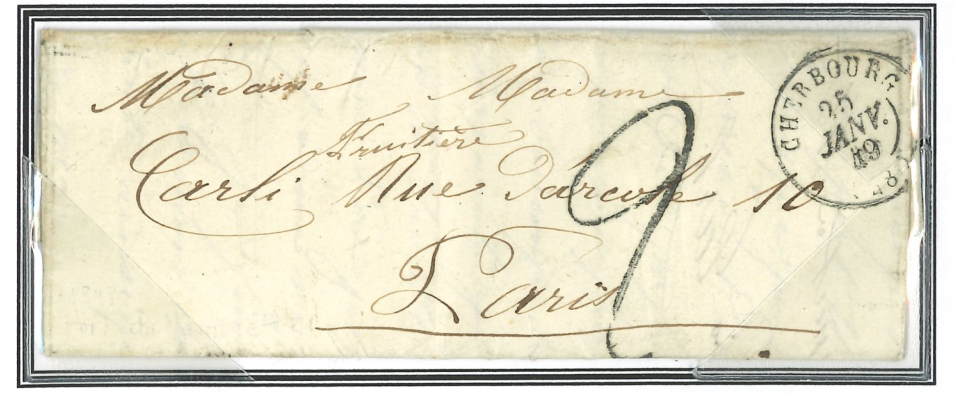 Madame Madame
Fruitière
Carli Rue Darcole 10
Paris
2
CHERBOURG
25
JANV.
49